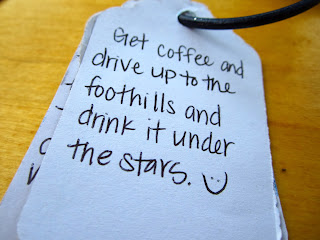 Get coffee and
drive up to the
foothills and
drink it under
the stars. :)